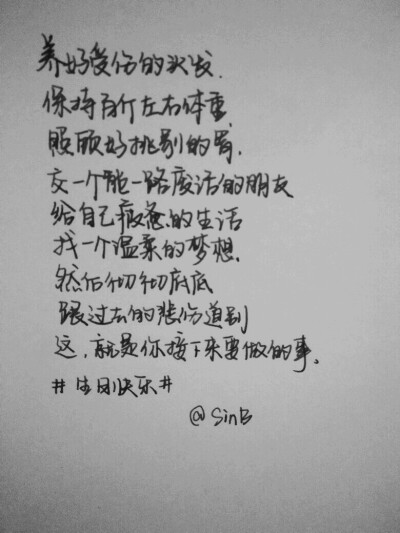 养好受伤的头发.
保持百斤左右体重
照顾好挑剔的胃.
交一个能一路废话的朋友
给自己疲惫的生活
找一个温柔的梦想.
然后彻彻底底
跟过去的悲伤道别
这.就是你接下来要做的事。
#生日快乐#
@SinB